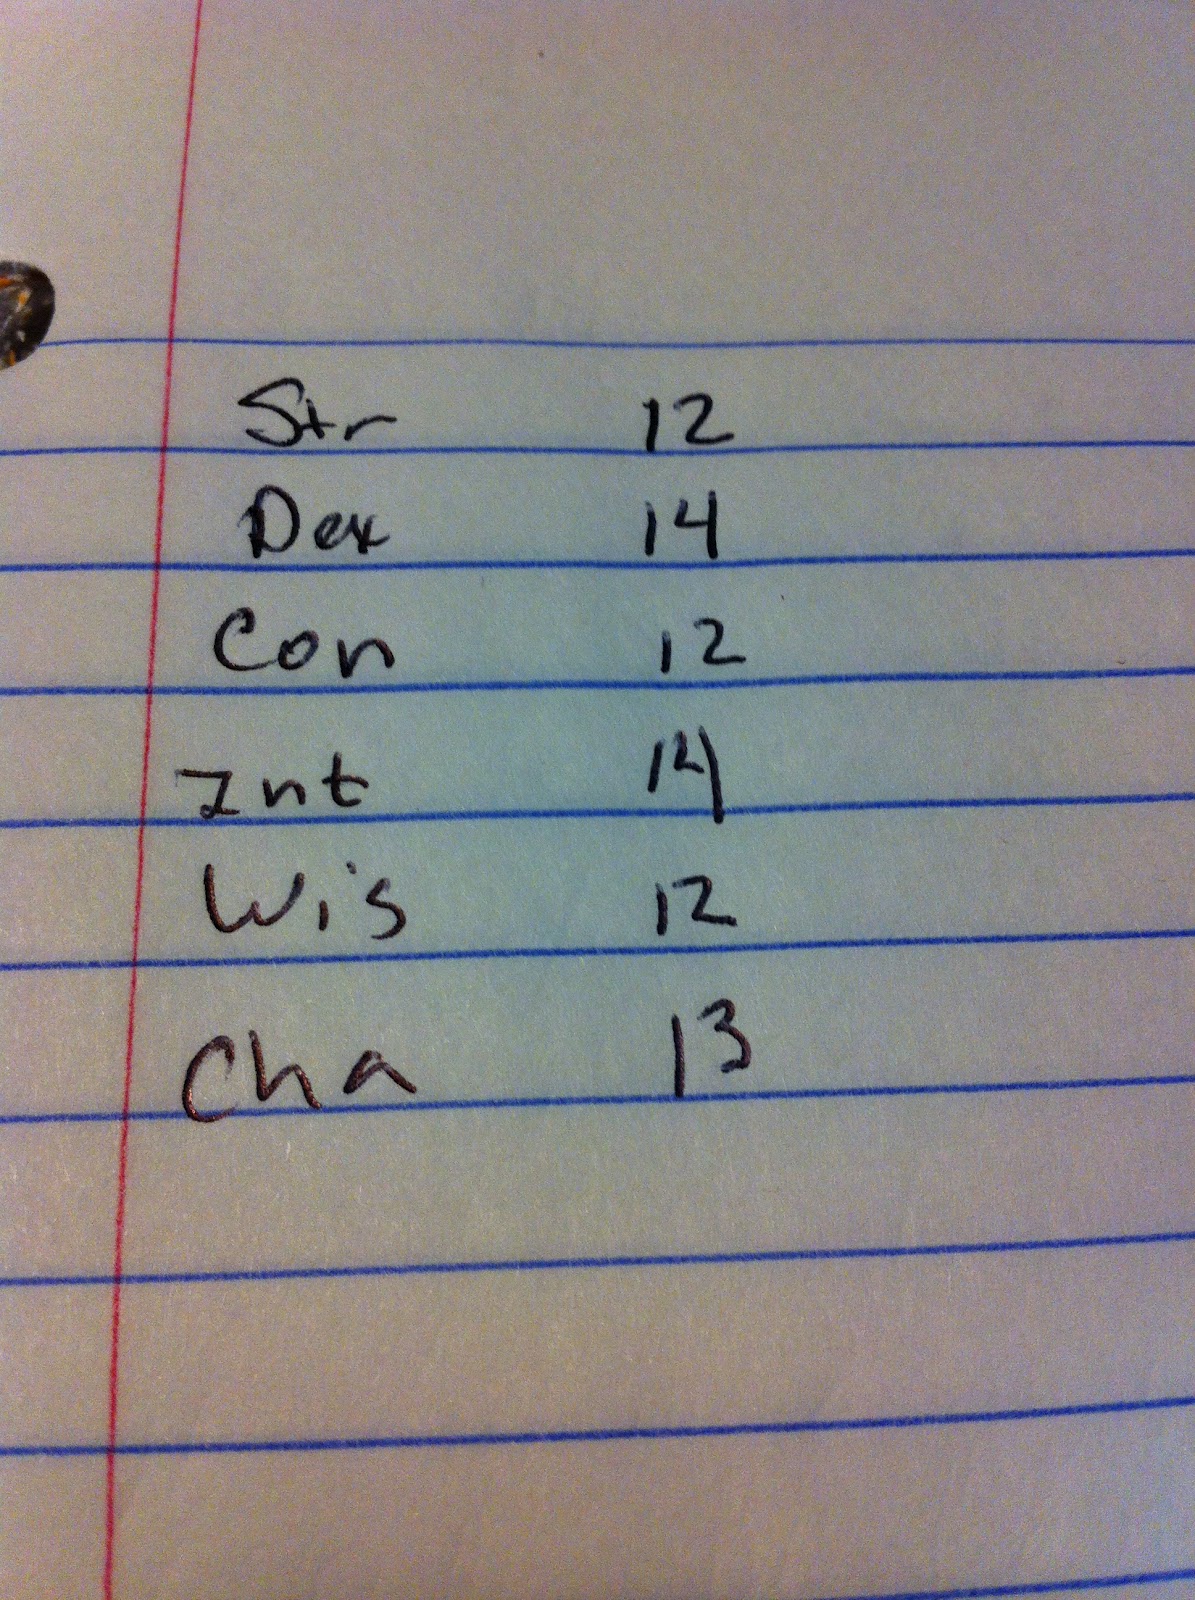 Str 12
Dex 14
Con 12
Int 14
Wis 12
Cha 13